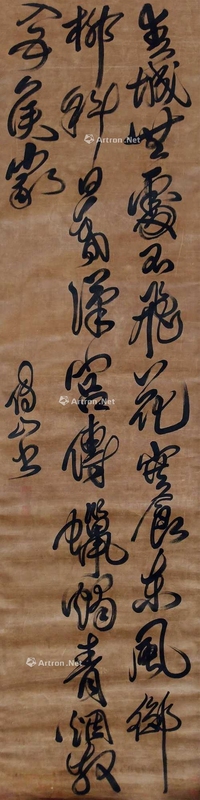 春城無處不飛花寒食東風御
柳斜日暮漢宮傳蠟燭青煙散
入五侯家
傅山書
Artron.Net
Artron.Net
Artron.Net
Artron.Net
Artron.Net
Artron.Net